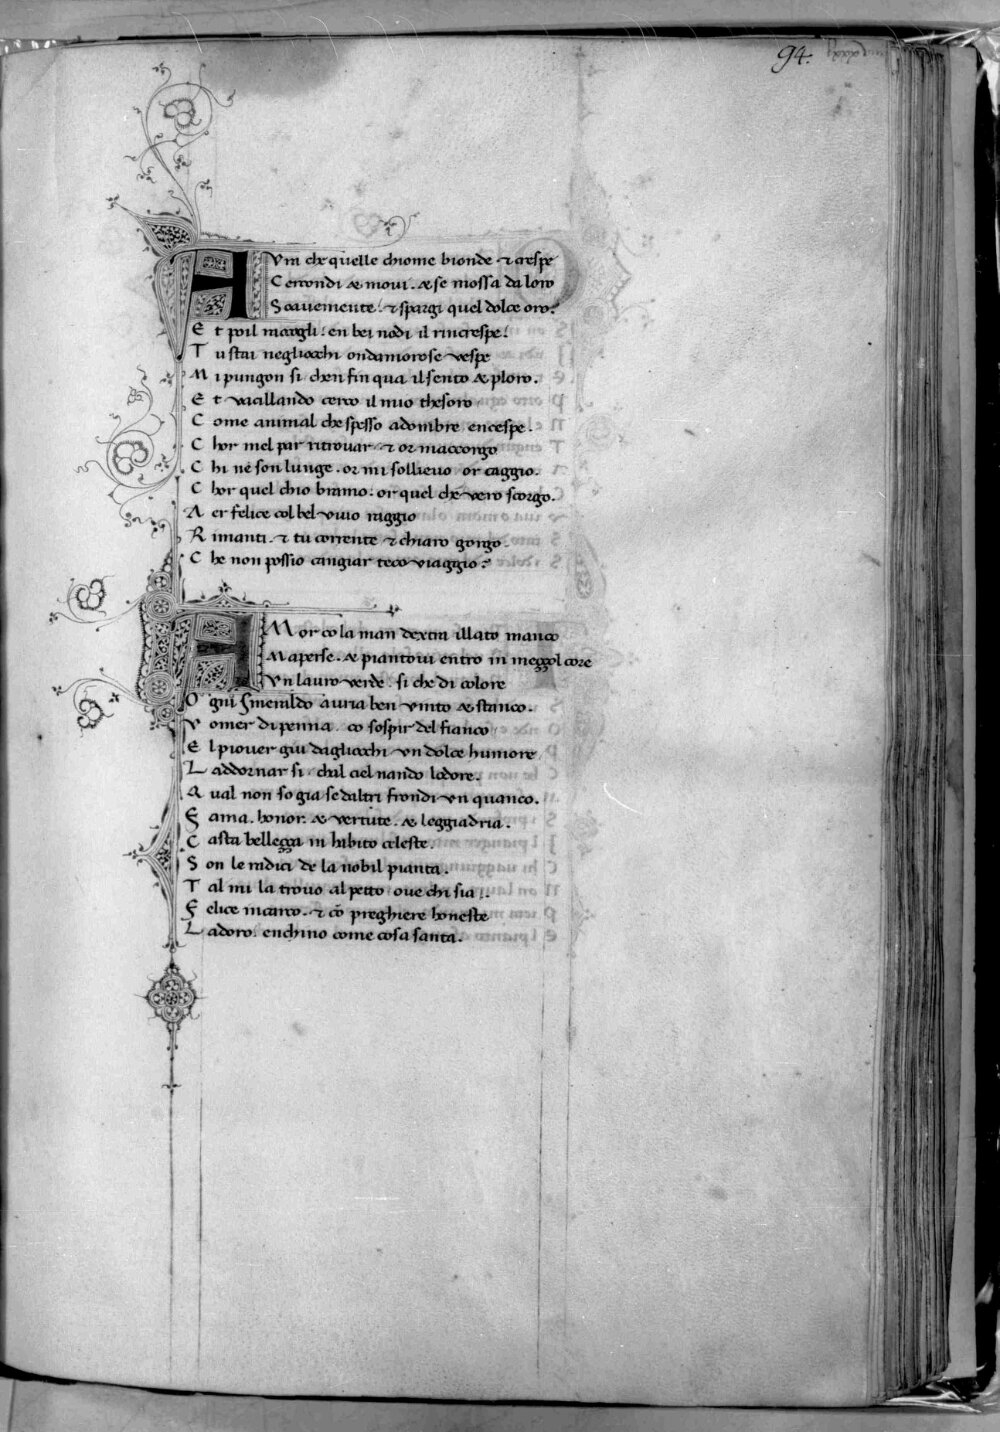 94.
AVra che quelle chiome bionde & crespe
Cercondi & movi. & se mossa da loro
Soavemente. & spargi quel dolce oro.
Et poil maccogli. en bei nodi il rincrespe.
Tu stai negliocchi ondamorose vespe
Mi pungon si chen fin qua il sento & ploro.
Et vacillando cerco il mio thesoro
Come animal che spesso adombre encespe.
Chor mel par ritrovar. & or maccorgo
Chi ne son lunge. or mi sollievo or caggio.
Chor quel chio bramo. or quel che vero scorgo.
Aer felice col bel vivo raggio
Rimanti. & tu corrente & chiaro gorgo.
Che non possio cangiar teco viaggio?
AMor co la man dextra illato manco
Maperse. & piantovi entro in meggol core
Vn lauro verde. si che di colore
Ogni Smeraldo auria ben vinto & stanco.
Vomer di penna. co sospir del fianco
El piover giu dagliocchi vn dolce humore
Laddornar si. chal ciel nando lodore.
Qual non so gia se daltri frondi vn quanco.
Fama. honor. & vertute. & leggiadria.
Casta bellegga in habito celeste.
Son le radici de la nobil pianta.
Tal mi la trovo al petto ove chi sia.
Felice incarco. & cō preghiere honeste
Ladoro. enchino come cosa santa.